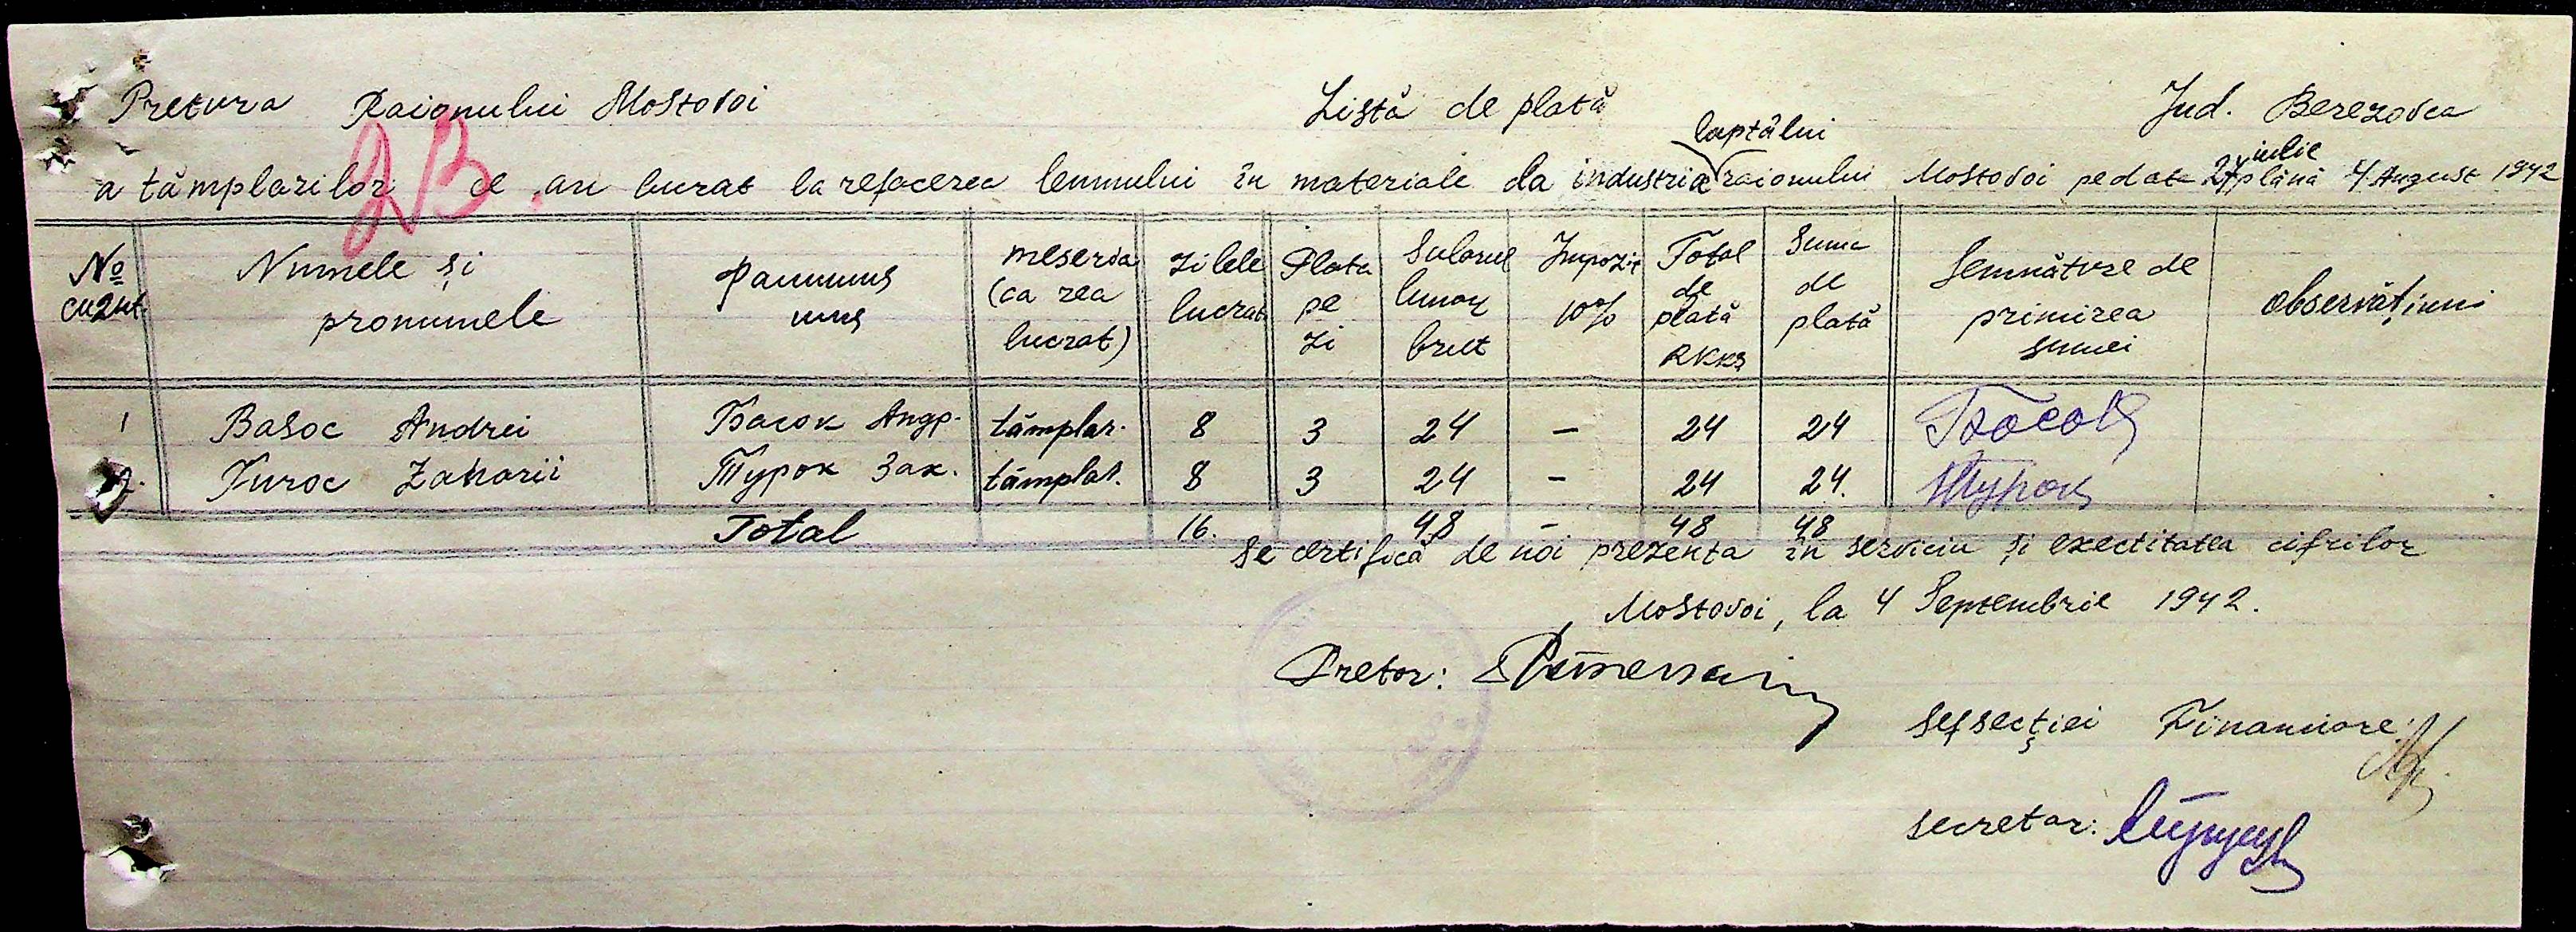 Pretura Raionului Mostovoi Listă de plată Jud. Berezovca
laptâlui iulie
a tâmplarilor ce au lucrat la refacerea lemnului în materiale la industria raionului Mostovoi pe data 27 până 4 August 1942
№ Numele și meseria Zilele Plata Salarul Impozit Total Suma Semnăture de observațiuni
pronumele (ca rea lucrat pe lunar 10% de de primirea
lucrat) zi brut plată plată sumei
RKKS
1 Basoc Andrei Басок Андр. tâmplar. 8 3 24 — 24 24 Басок
2. Turoc Zaharii Турок Зах. tâmplar. 8 3 24 — 24 24. Турок
Total 16. 48 — 48 48
Se certifică de noi prezența în serviciu și exectitatea cifrilor
Mostovoi, la 4 Septembrie 1942.
Pretor:
Șef secției Financiare:
Secretar: